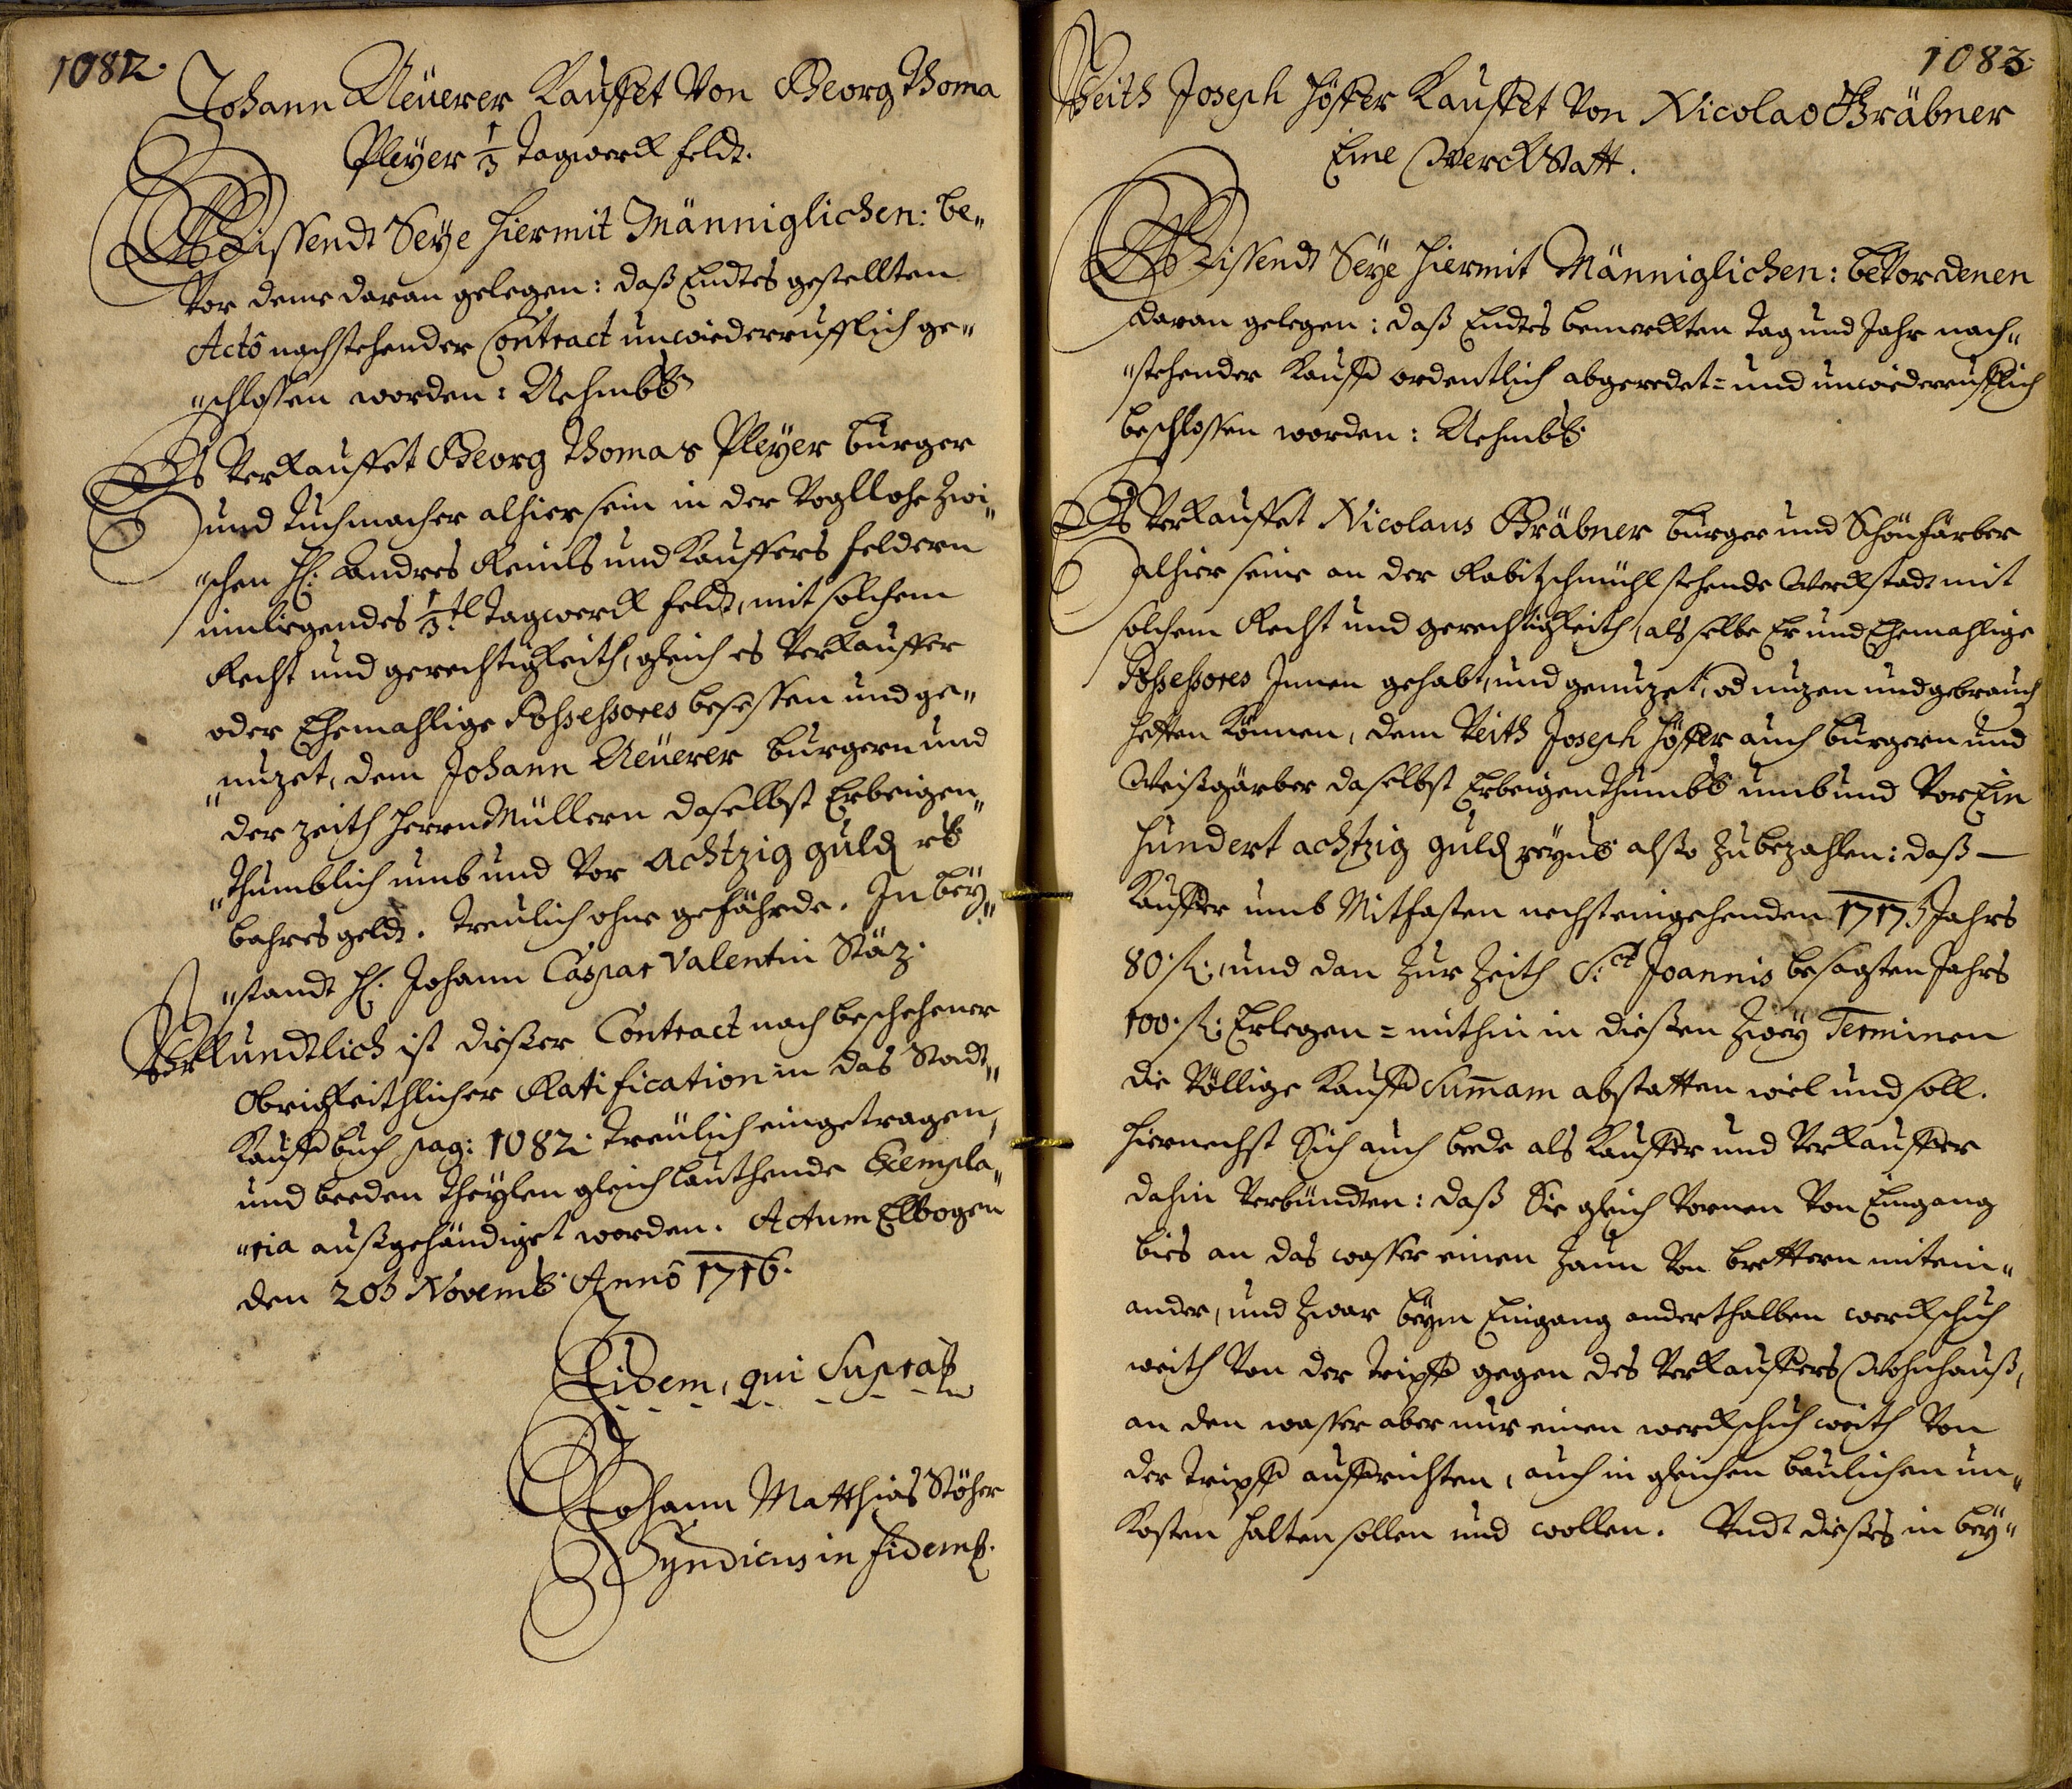 1082.
Johann Neüerer Kauffet Von Georg Thoma
Pleyer 1/3 Tagwerck feldt.
Wissendt Seye hiermit Männiglichen: be„
Vor deme daran gelegen: daß Endtes gestellten
Actô nachstehender Contract unwiederrufflich ge„
„schlossen worden: Nehmbl:
Es Verkauffet Georg Thomas Pleyer burger
und Tuchmacher alhier sein in der Vogllohe zwi„
„schen H: Andres Reinls und Kauffers feldern
innligendes 1/3.tl Tagwerck feldt, mit solchem
Recht und gerechtigkeith, gleich es Verkauffer
oder Ehemahlige Possessores besessen und ge„
„nuzet, dem Johann Neüerer burgern und
der Zeith Herrn Müllern daselbst Erbeigen„
„thumblich umb und Vor achtzig guld rh
bahres geldt. Treulich ohne gefährde. In bey„
„standt H: Johann Caspar Valentin Stäz.
Uhrkundtlich ist dießer Contract nach beschehener
Obrigkeithlicher Ratification in das Stadt„
Kauffbuch pag: 1082. treulich eingetragen,
und beeden Theylen gleichlauthende Exempla„
„ria außgehändiget worden. Actum Elbogen
den 20t Novemb: Annô 1716.
Eidem, qui Supra
Johann Matthias Stöhr
Syndicus in fidem.
1083.
Veith Joseph Höffer Kauffet Von Nicolao Gräbner
Eine Werckstatt.
Wissendt Seye hiermit Männiglichen: beVor denen
daran gelegen: daß Endtes bemerckten Tag und Jahr nach„
„stehender Kauff ordentlich abgeredet= und unwiederrufflich
beschlossen worden: Nehmbl:
Es Verkauffet Nicolaus Gräbner burger und Schönfärber
alhier seine an der Rabitzschmühl stehende Werckstadt mit
solchem Recht und gerechtigkeith, als selbe Er und Ehemahlige
Possessores Innen gehabt, und genuzet, od nuzen und gebrauch
hetten können, dem Veith Joseph Höffer auch burgern und
Weißgärber daselbst Erbeigenthumbl: umb und Vor Ein
hundert achtzig guld reyns also zu bezahlen: daß —
Kauffer umb Mitfasten nechsteingehenden 1717.t Jahrs
80. fl:, und dan zur Zeith S.ct Joannis besagten Jahrs
100. fl: Erlegen= mithin in dießen zwey Terminen
die Völlige Kauff Sum̄am abstatten wiel und soll.
Hiernechst Sich auch bede als Kauffer und Verkauffer
dahin Verbündten: daß Sie gleich Vornen Von Eingang
bies an das wasser einen Zaun Von brettern mitein„
ander, und zwar beym Eingang anderthalben werckschuh
weith Von der Tripff gegen des Verkauffers Wohnhauß,
an den wasser aber nur einen werckschuh weith Von
der Tripff auffrichten, auch in gleichen baulichen un„
Kosten halten sollen und wollen. Undt dießes in bey„